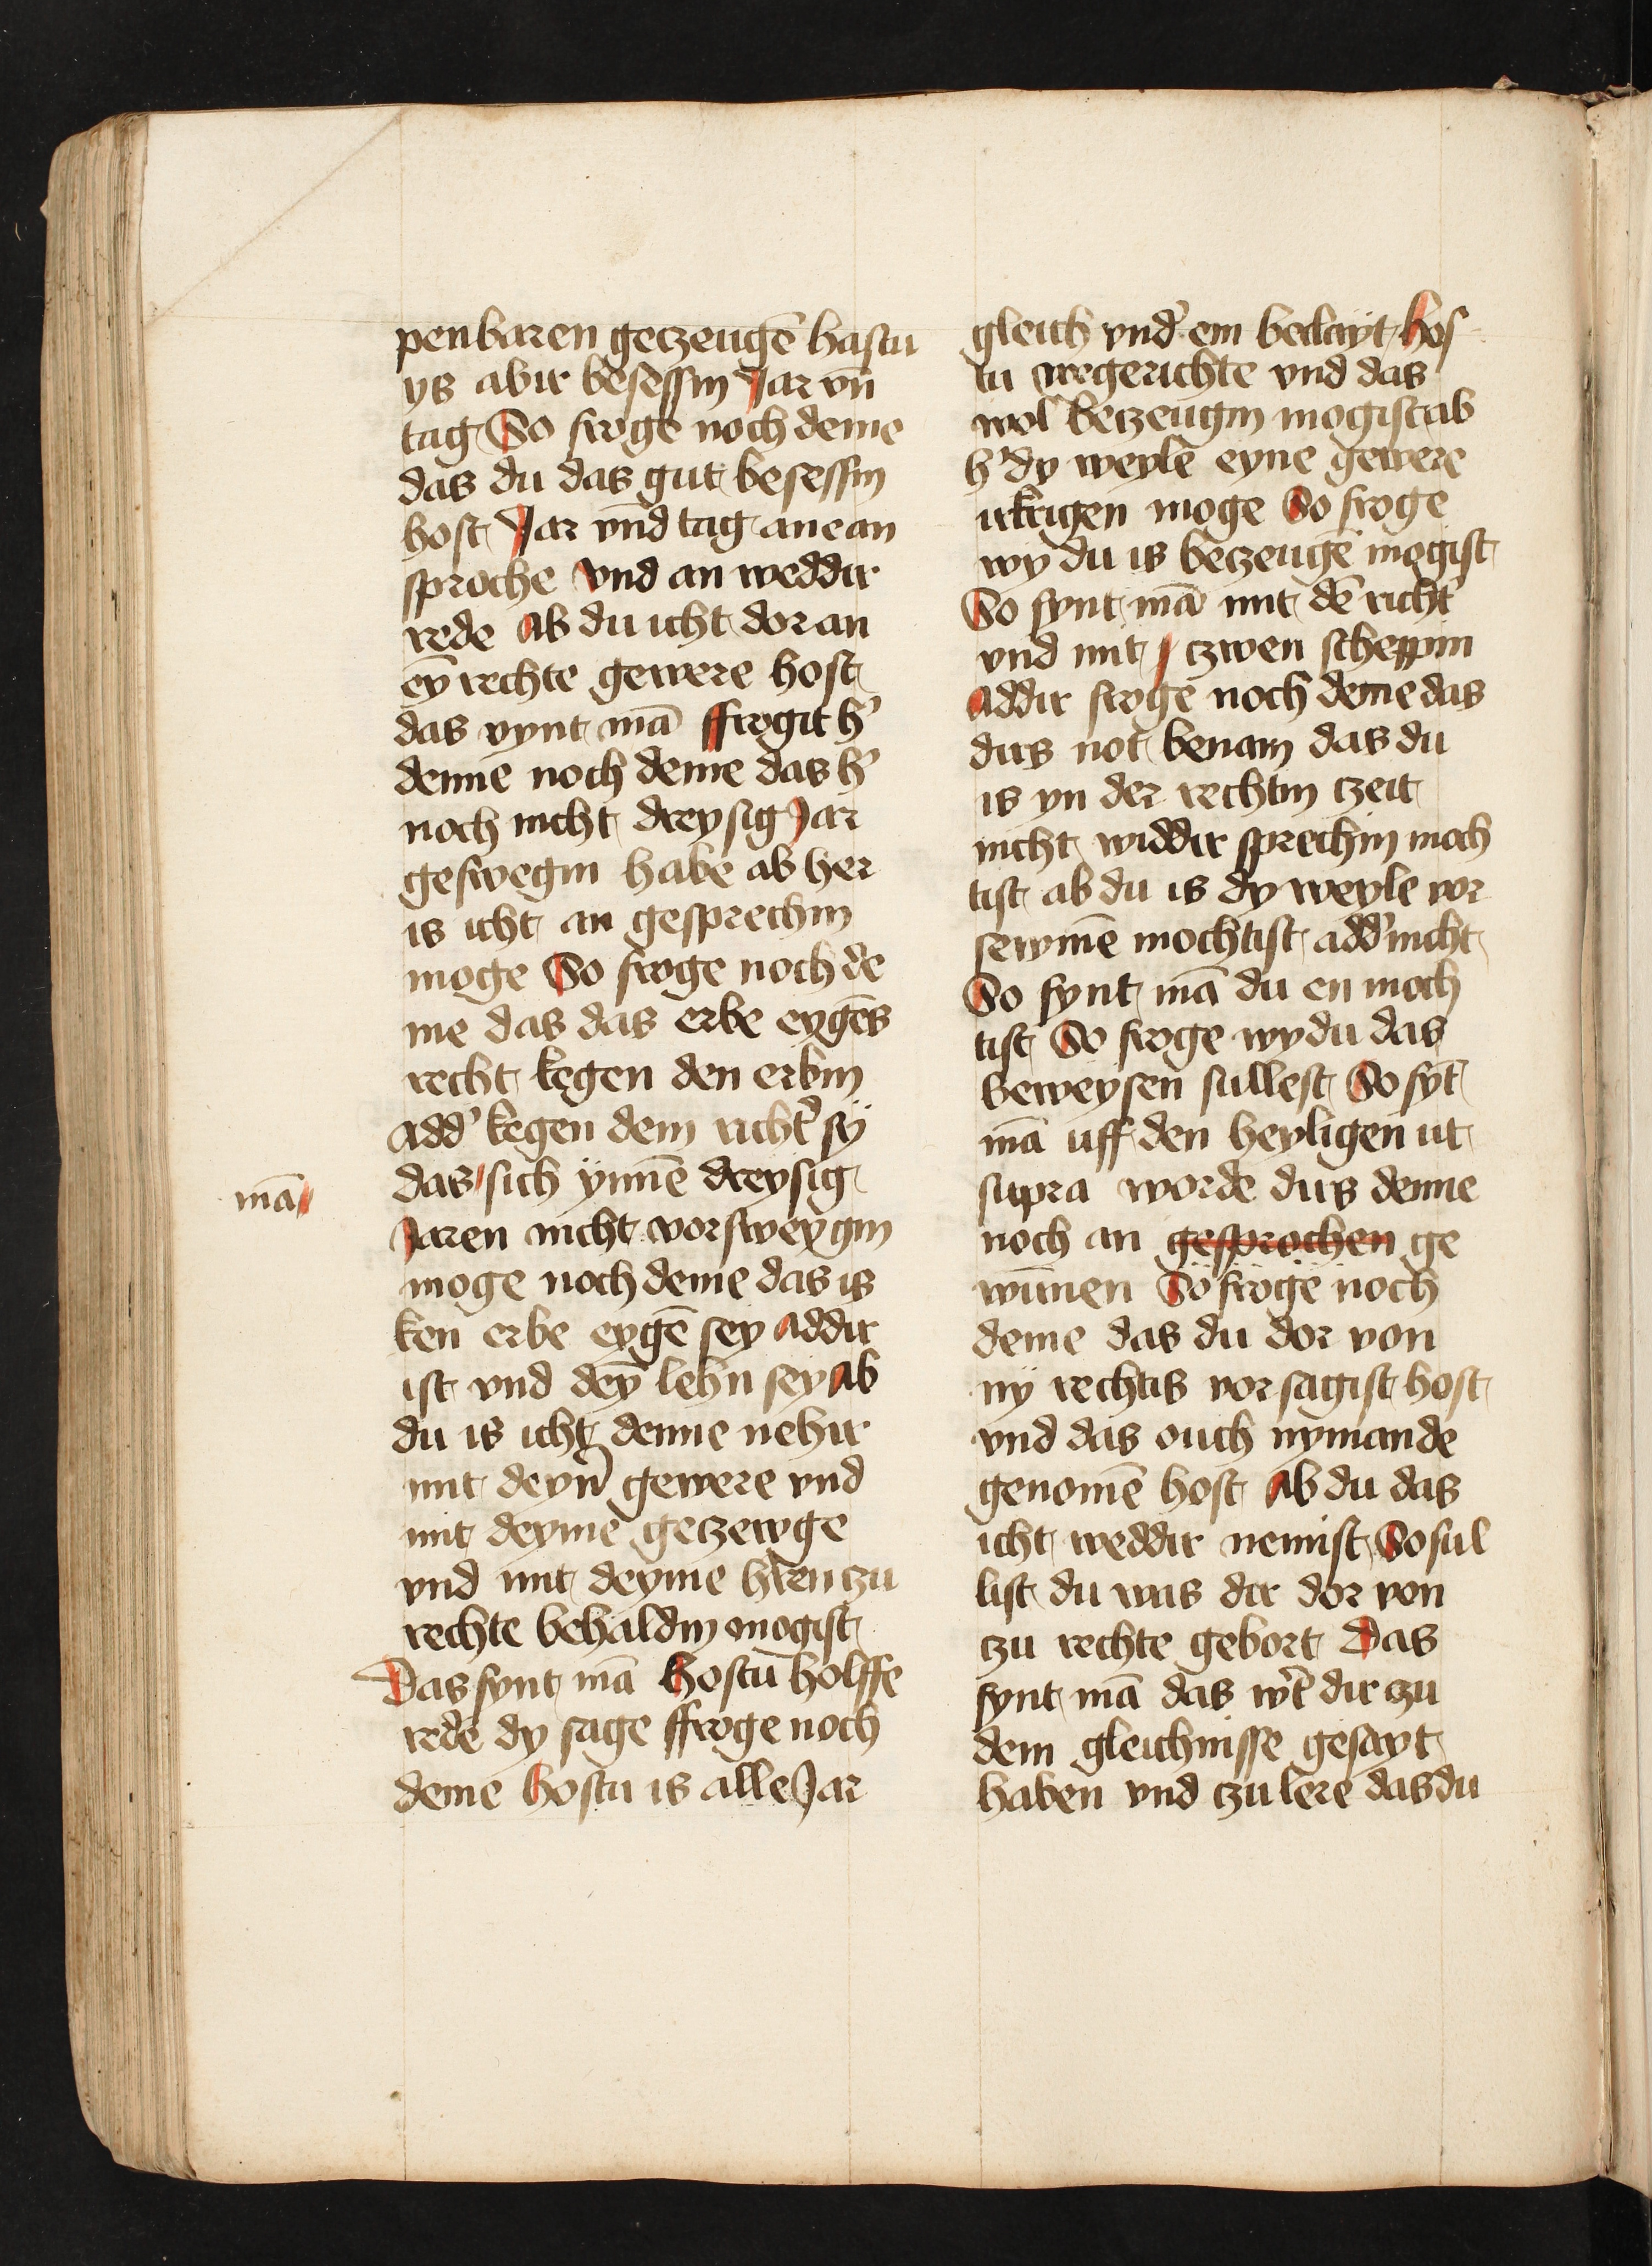 penbaren geczeugē hastu
ys abir besessin Jar vn̄
tag So froge noch deme
das du das gut besessin
host Jar vnd tag ane an
sproche vnd an weddir
rede Ab du icht dor an
eȳ rechte gewere host
das vynt mā ffrogit h'
denne noch deme das h'
noch nicht dreysig Jar
geswegin habe ab her
is icht an gesprechin
moge So froge noch de
me das das erbe eygēs
recht kegen den erbin
add' kegen dem richt' sÿ
mā das sich ÿnnē dreysig
Jaren nicht vorsweygin
moge noch deme das is
ken erbe eygē sey addir
ist vnd deȳ lehn sey ab
du is icht denne nehir
mit deyn' gewere vnd
mit deyme geczewge
vnd mit deyme h'ren czu
rechte behaldin mogist
Das fynt mā Hostu holffe
rede dy sage ffroge noch
deme hostu is alle Jar
gleich vnd' em beclayt hos
tu vregerichte vnd das
wol beczeugin mogist ab
h' dy weyle eyne gewere
irkrigen moge So froge
wy du is beczeugē mogist
So fynt mā mit dē richt'
vnd mit czwen scheppin
Addir froge noch deme das
dirs not benam das du
is yn der rechtin czeit
nicht widdir sprechin moch
tist ab du is dy weyle vor
sewmē mochtist add' nicht
So fynt mā du en moch
tist So froge wy du das
beweysen sullest So fȳt
mā uff den heyligen ut
supra worde dirs denne
noch an gesprochen ge
wūnen So froge noch
deme das du dor von
nÿ rechtis vorsagist host
vnd das ouch nymande
genomē host Ab du das
icht weddir nemist So sul
list du was dir dor von
czu rechte gebort Das
fynt mā das w't dir czu
dem gleichnisse gesayt
haben vnd czu lere das du